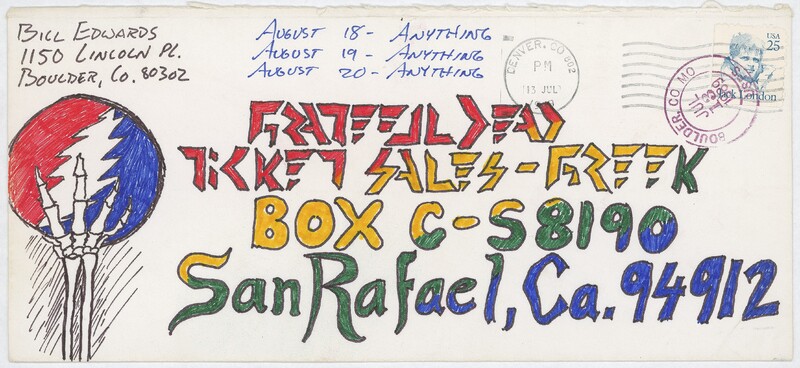 Bill Edwards
1150 Lincoln Pl.
Boulder, Co. 80302
August 18 - Anything
August 19 - Anything
August 20 - Anything
DENVER, CO 802
PM
13 JUL
USA
25
Jack London
BOULDER, CO MO
JUL
GRATEFUL DEAD
TICKET SALES - GREEK
BOX C-S8190
San Rafael, Ca. 94912